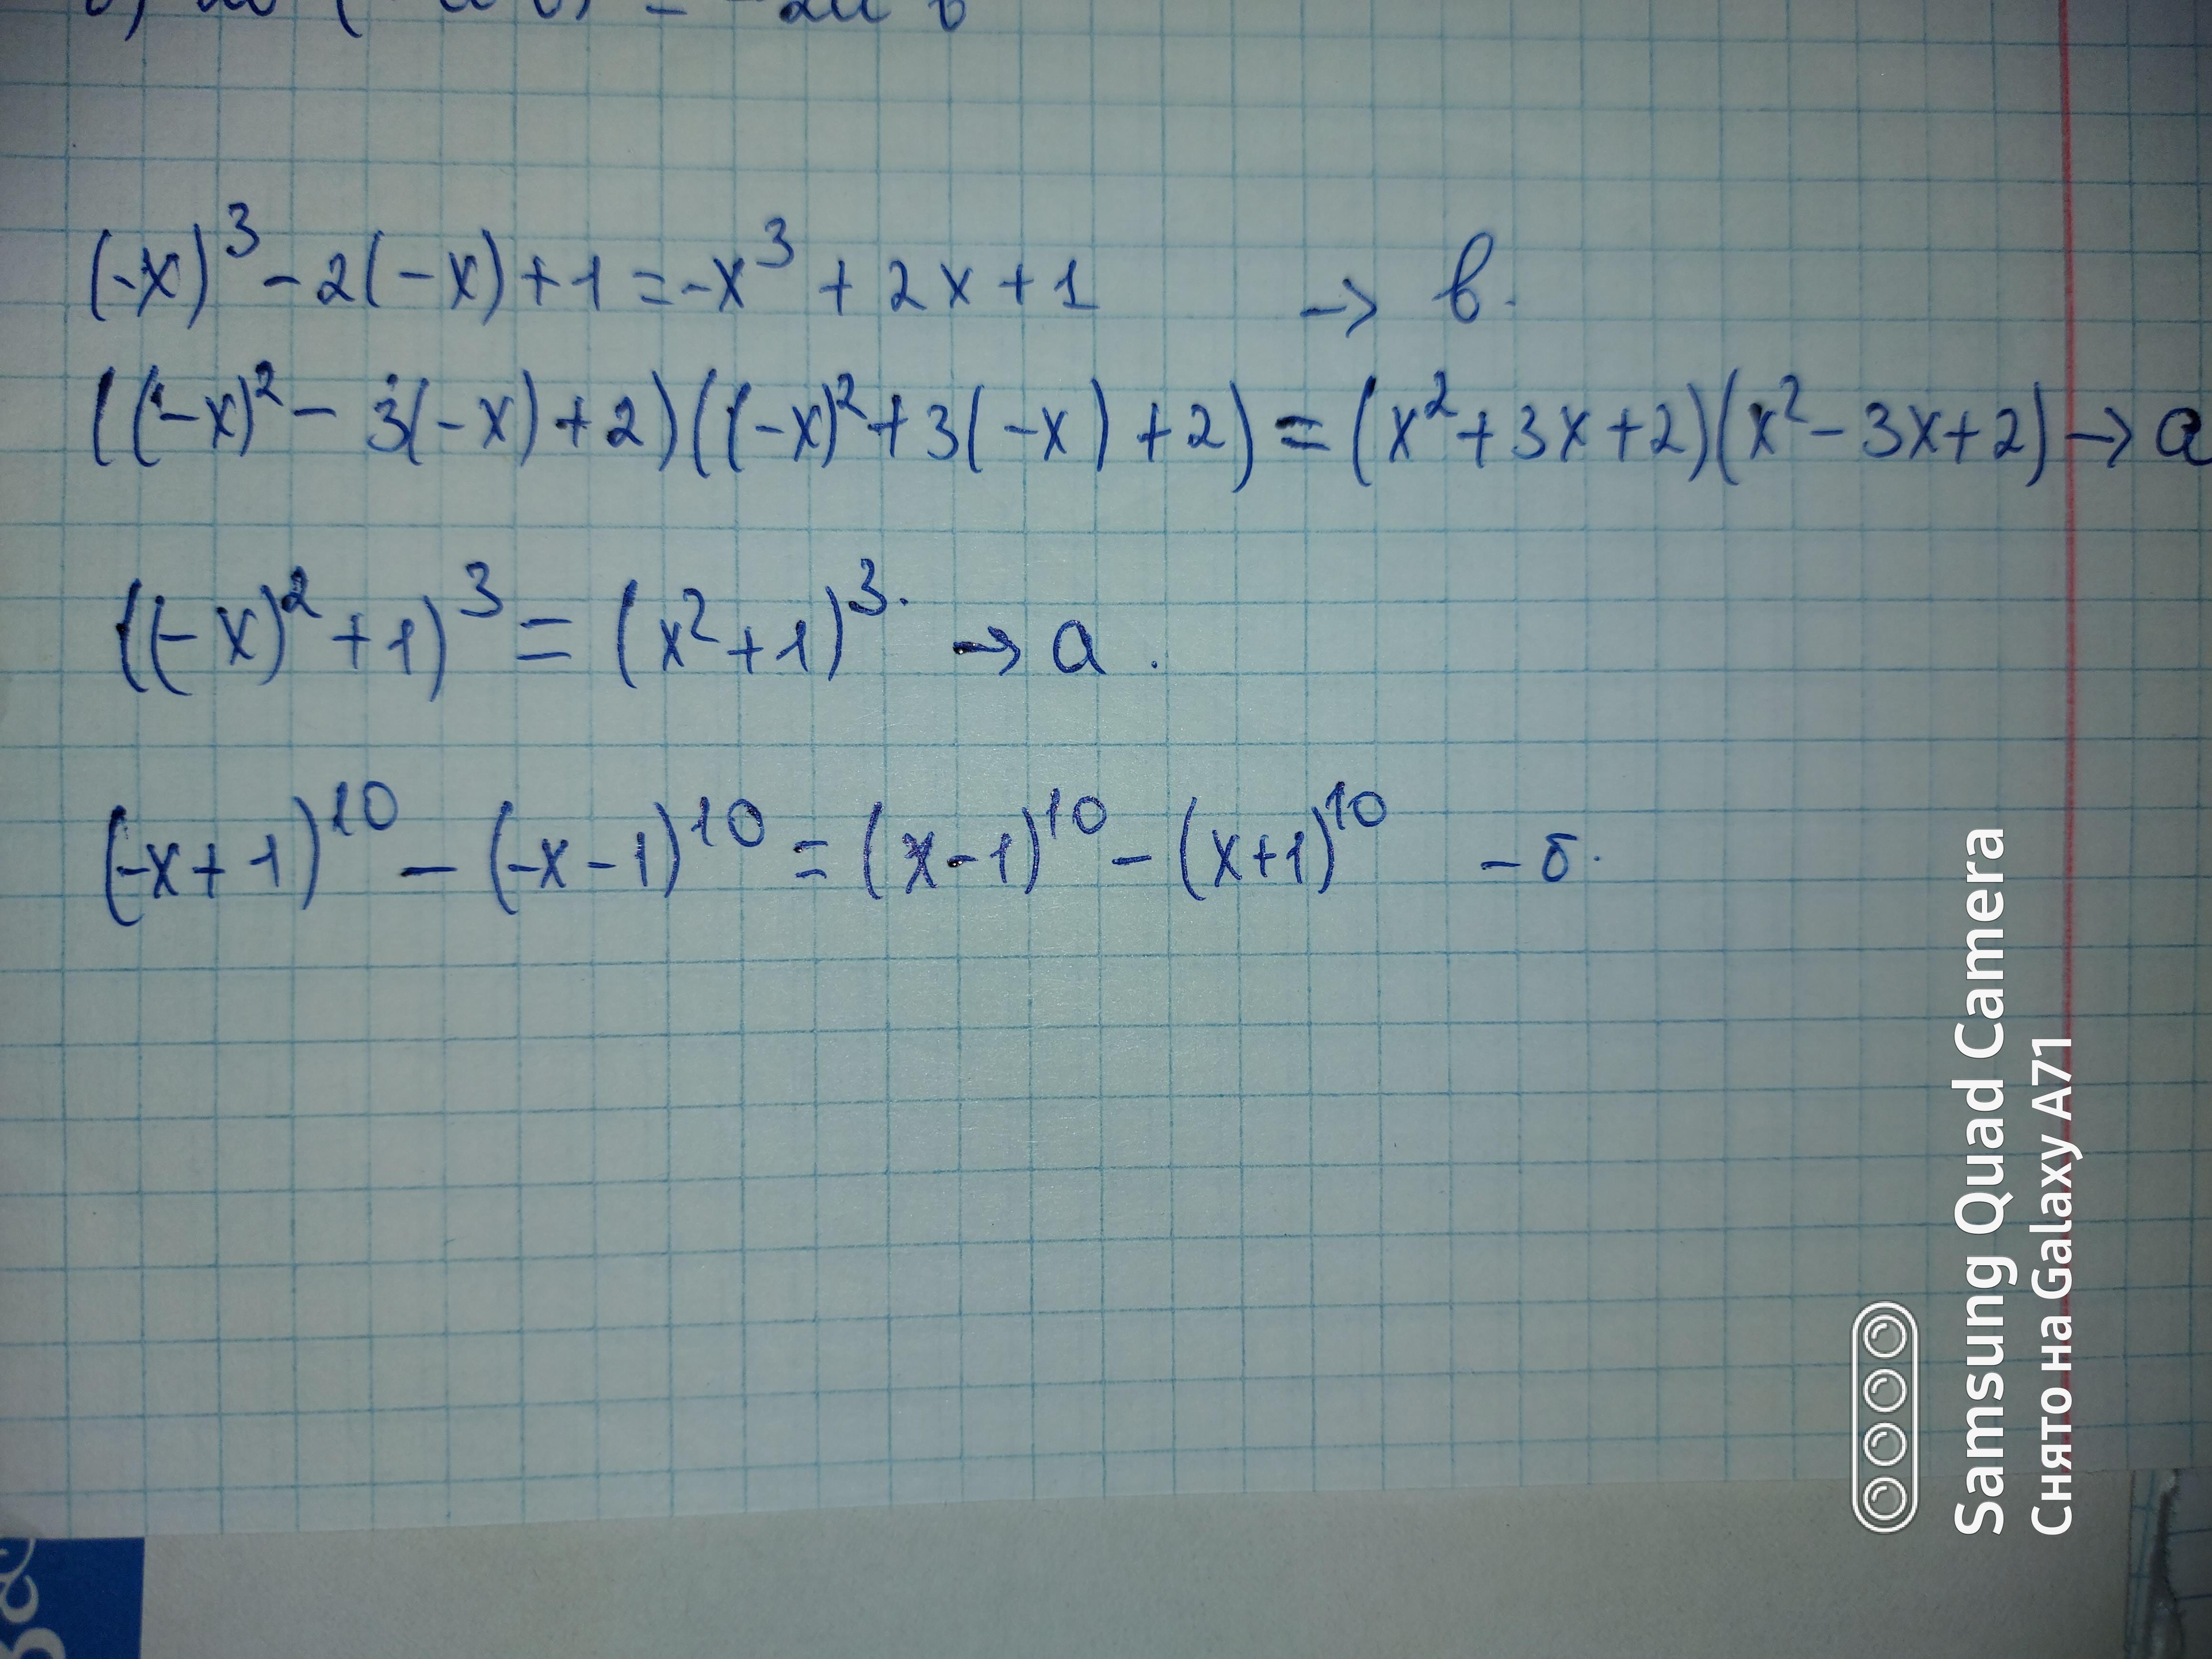 (-x)³ - 2(-x) + 1 = -x³ + 2x + 1 → в.
((-x)² - 3(-x) + 2)((-x)² + 3(-x) + 2) = (x² + 3x + 2)(x² - 3x + 2) → а
((-x)² + 1)³ = (x² + 1)³. → а.
(-x + 1)¹⁰ - (-x - 1)¹⁰ = (x - 1)¹⁰ - (x + 1)¹⁰ - б.
Samsung Quad Camera
Снято на Galaxy A71